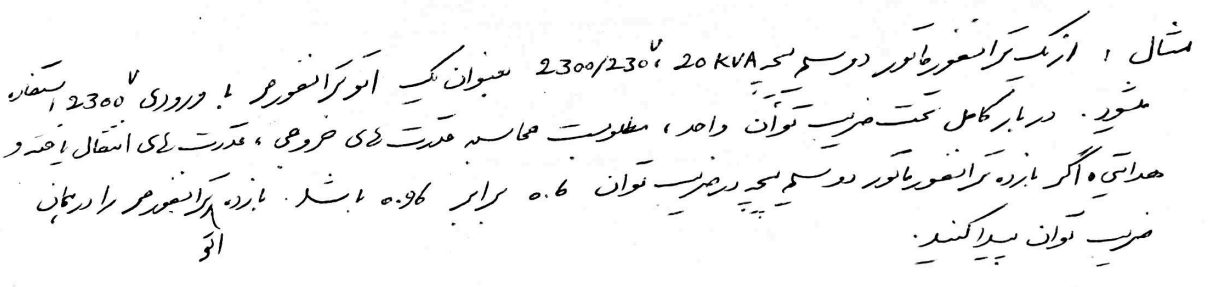 مثال : از یک ترانسفورماتور دو سیم پیچه 20 KVA ، 2300/230 V بعنوان یک اتوترانسفورمر با ورودی 2300 V استفاده
میشود. در بار کامل تحت ضریب توان واحد ، مطلوبست محاسبه قدرت های خروجی ، قدرت های انتقال یافته و
هدایتی ، اگر بازده ترانسفورماتور دو سیم پیچه در ضریب توان 0.6 برابر 0.96 باشد. بازده اتوترانسفورمر را در همان
ضریب توان پیدا کنید.